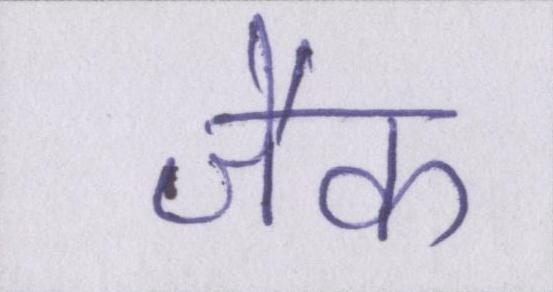 जैक